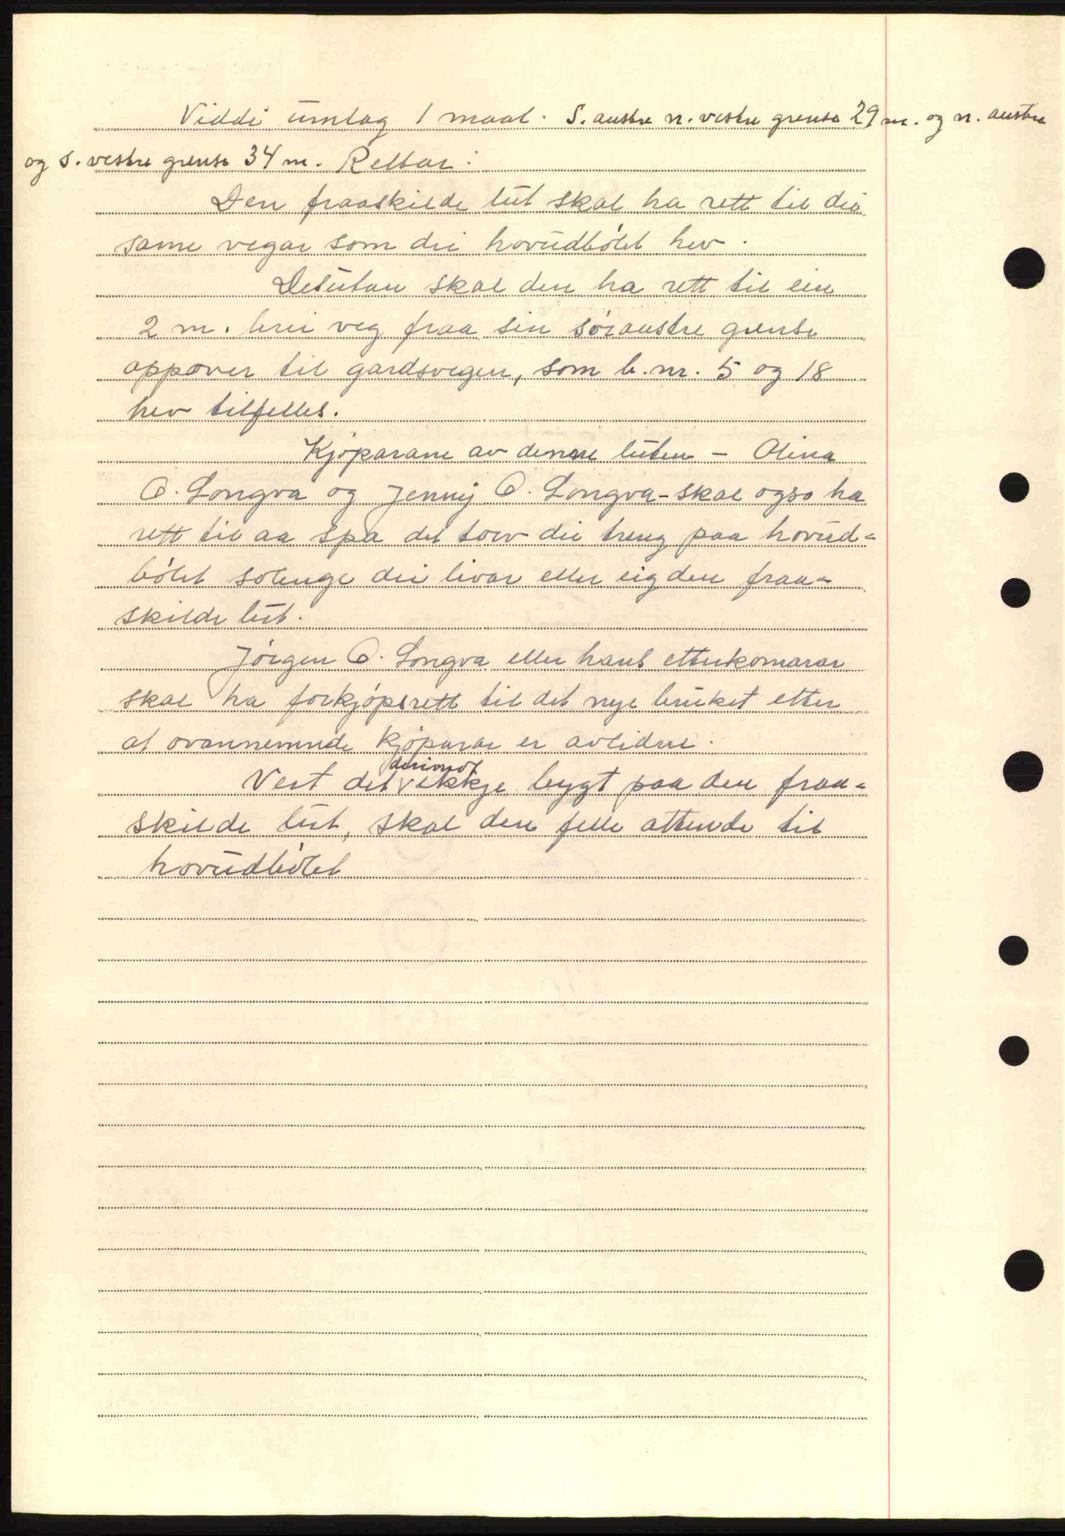 Viddi umlag 1 maal. S. austre n. vestre grense 29 m. og n. austre
og s. vestre grense 34 m. Rettar:
Den fraaskilde lut skal ha rett til dei
same vegar som dei hovudbölet hev.
Desutan skal den ha rett til ein
2 m. brei veg fraa sin söraustre grense
oppover til gardsvegen, som b.nr. 5 og 18
hev tilfelles.
Kjöparane av denne luten - Olina
O. Longva og Jenny O. Longva - skal ogso ha
rett til aa spa det torv dei treng paa hovud-
bölet solenge dei livar eller eig den fraa-
skilde lut.
Jörgen O. Longva eller hans etterkomarar
skal ha forkjöpsrett til det nye bruket etter
at ovannemnde kjöparar er avlidne.
derimot
Vert det ikkje bygt paa den fraa-
skilde lut, skal den felle attende til
hovudbölet